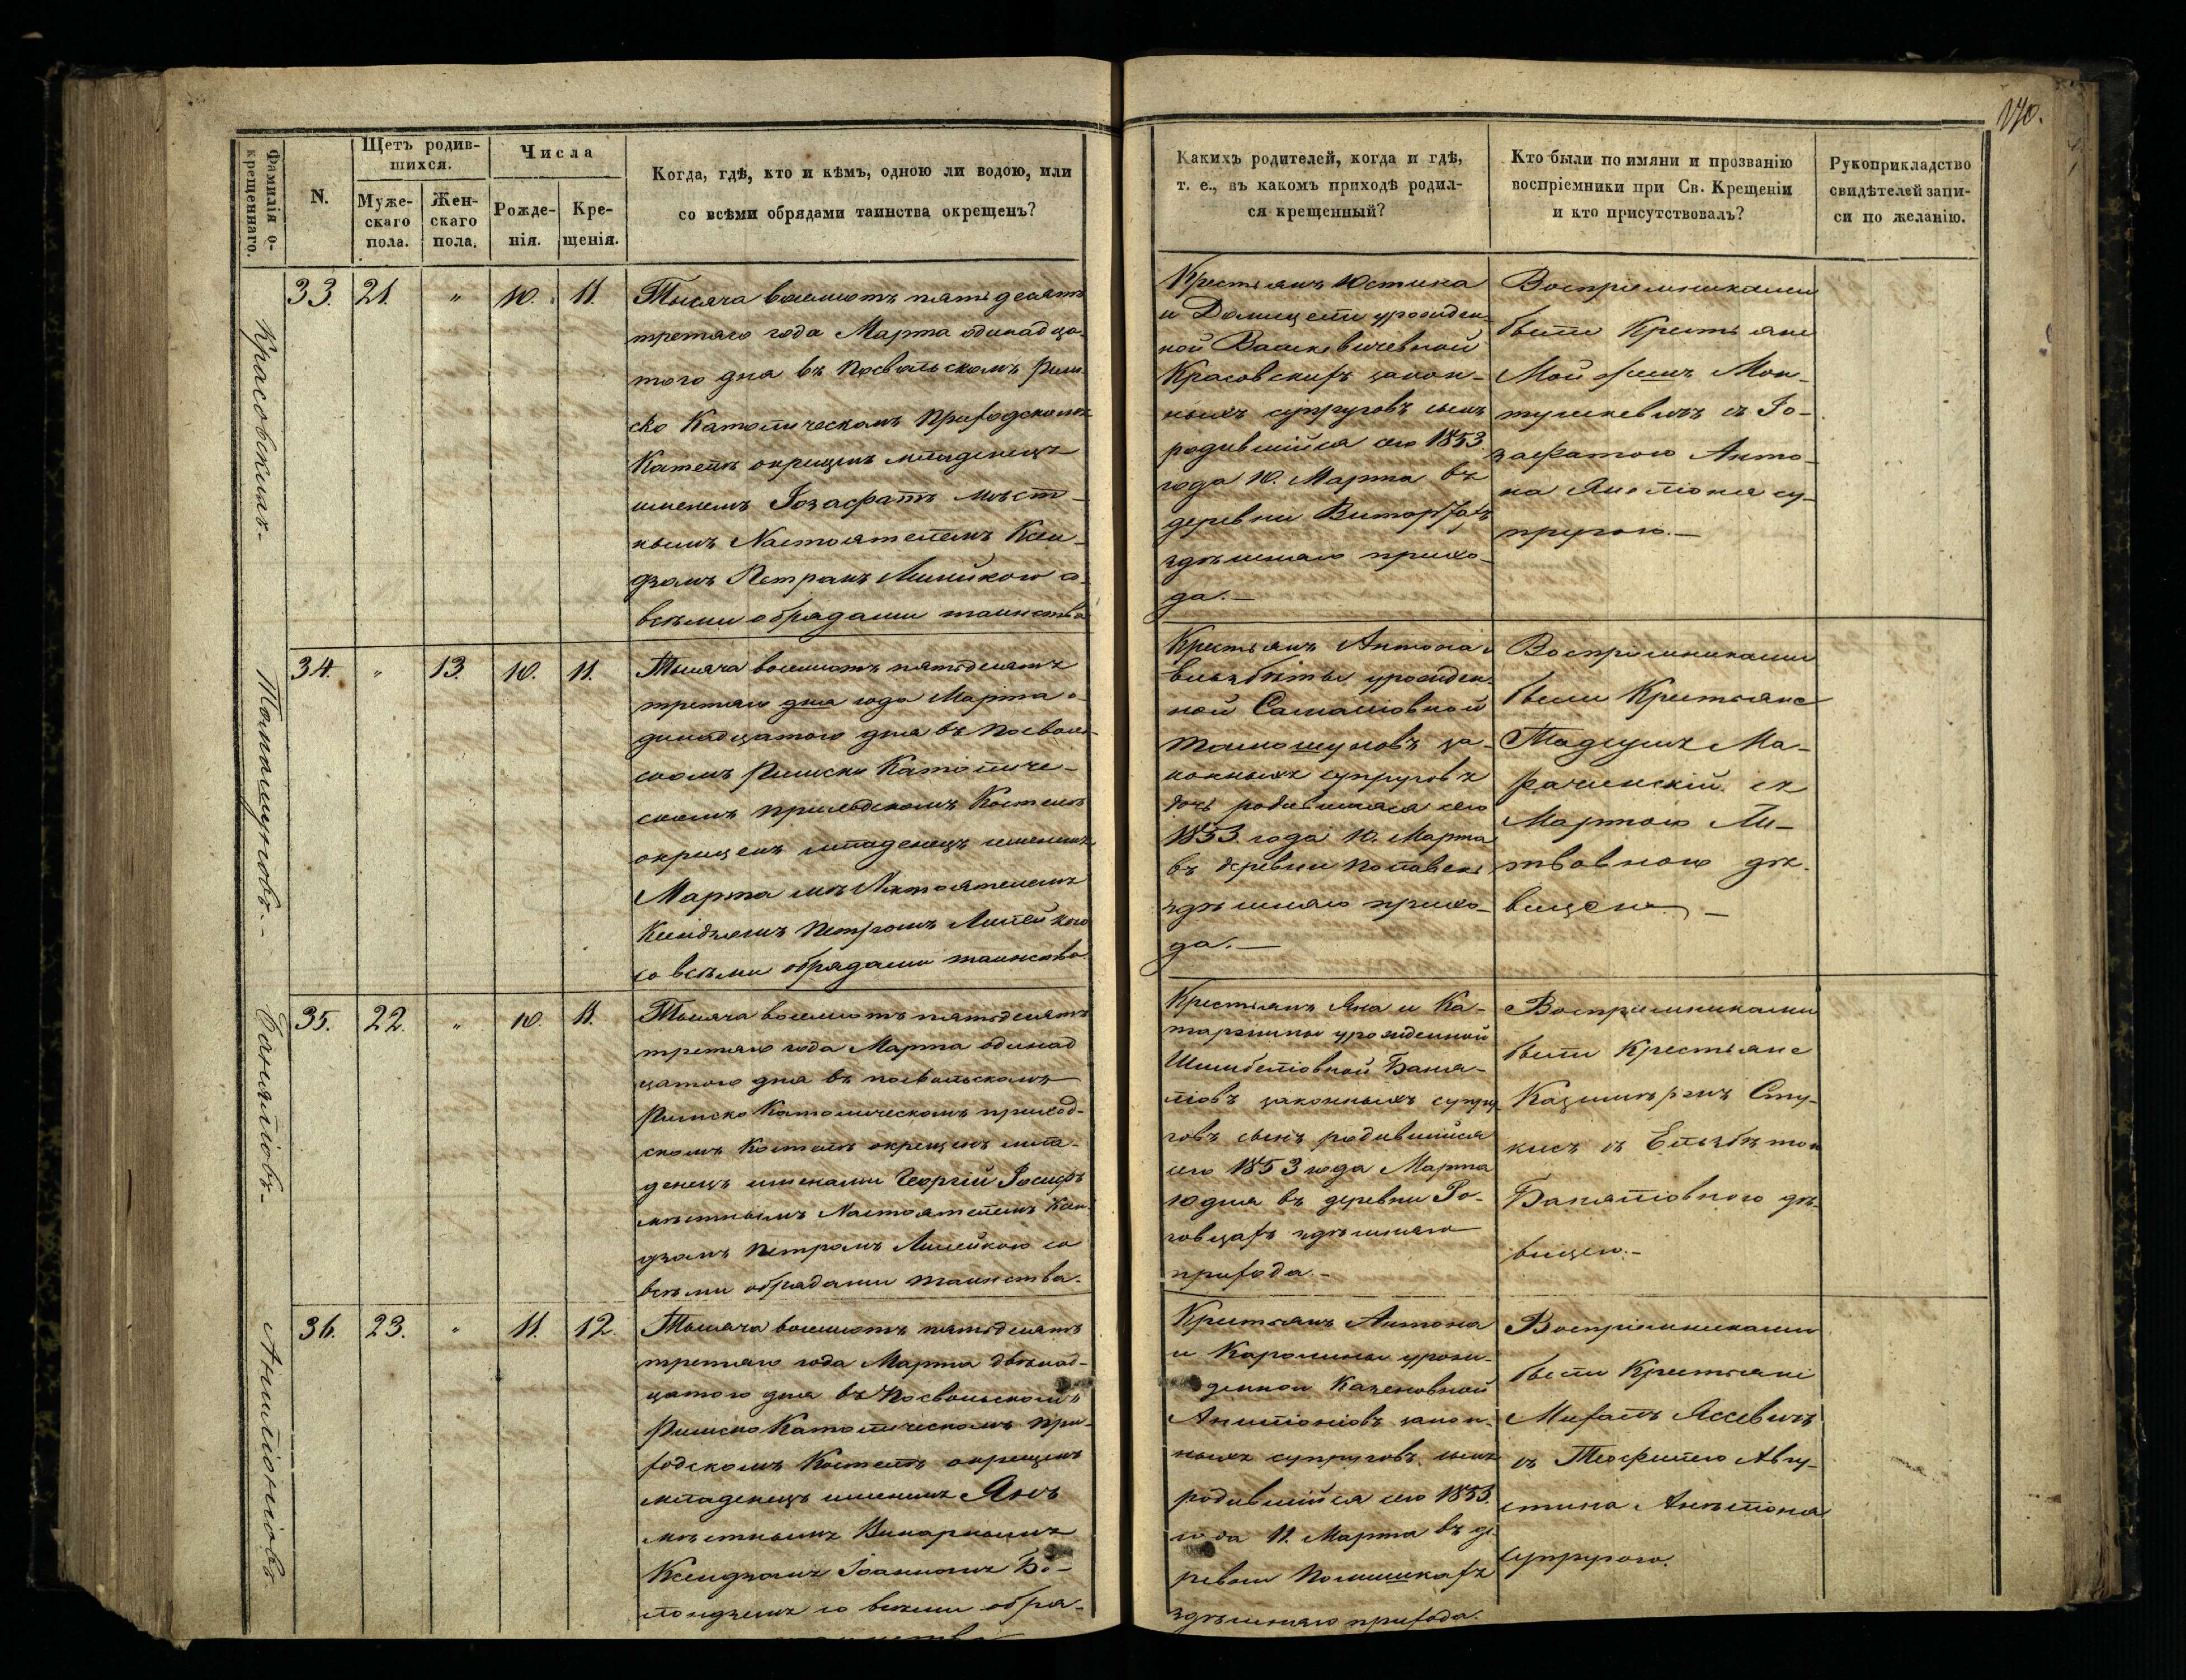 170.
Фамилія о-
крещеннаго.
N.
Щетъ родив-
шихся.
Муже-
скаго
пола.
Жен-
скаго
пола.
Числа
Рожде-
нія.
Кре-
щенія.
Когда, гдѣ, кто и кѣмъ, одною ли водою, или
со всѣми обрядами таинства окрещенъ?
Какихъ родителей, когда и гдѣ,
т. е., въ какомъ приходѣ родил-
ся крещенный?
Кто были по имяни и прозванію
воспріемники при Св. Крещеніи
и кто присутствовалъ?
Рукоприкладство
свидѣтелей запи-
си по желанію.
Красовскихъ.
33. 21. " 10. 11.
Тысяча восемсотъ пятьдесятъ
третяго года Марта одинадца-
того дня въ Посвольскомъ Рим-
ско Католическомъ Приходскомъ
окрещенъ младенецъ
именемъ Іозафатъ мѣст-
нымъ Настоятелемъ Ксен-
дзомъ Петромъ со
всѣми обрядами таинства
Крестьянъ Юстина
и урожден-
ной
Красовскихъ закон-
ныхъ супруговъ сынъ
родившійся сего 1853
года 10. Марта въ
деревни
здѣшняго прихо-
да.—
Воспріемниками
были Крестьяне
Мон-
тушкевичъ съ Іо-
зафатою Анто-
на су-
пругою.—
34. " 13. 10. 11.
Тысяча восемсотъ пятьдесятъ
третяго дня года Марта о-
динадцатого дня въ Посволь-
скомъ Римско Католиче-
скомъ приходскомъ Костелѣ
окрещенъ младенецъ именемъ
Марта Настоятелемъ
Ксендземъ Петромъ
со всѣми обрядами таинства
Крестьянъ Антона и
Ельзбѣты урожден-
ной
за-
конныхъ супруговъ
дочь родившаяся сего
1853. года 10. Марта
въ деревни
здѣшняго прихо-
да.—
Воспріемниками
были Крестьяне
Тадеушъ Ма-
рачинскій съ
Мартою Ли-
твовною дѣ-
вицею.—
35. 22. " 10. 11.
Тысяча восемсотъ пятьдесятъ
третяго года Марта одинад
цатого дня въ посвольскомъ
Римско Католическомъ приход-
скомъ Костелѣ окрещенъ мла-
денецъ именами Георгій Іосифъ
мѣстнымъ Настоятелемъ Ксен-
дзомъ Петромъ со
всѣми обрядами таинства.
Крестьянъ Яна и Ка-
таржины урожденной
законныхъ супру-
говъ сынъ родившійся
сего 1853 года Марта
10 дня въ деревни Ро-
говцахъ здѣшняго
прихода.—
Воспріемниками
были Крестьяне
Казимиръ Сту-
кисъ съ Ельзбѣтою
дѣ-
вицею.—
36. 23. " 11. 12.
Тысяча восемсотъ пятьдесятъ
третяго года Марта двѣнад-
цатого дня въ Посвольскомъ
Римско Католическомъ При-
ходскомъ Костелѣ окрещенъ
младенецъ именемъ Янъ
мѣстнымъ Викарнымъ
Ксендзомъ Іоанномъ
со всѣми обря-
Крестьянъ Антона
и Каролины урож-
денной
закон-
ныхъ супруговъ сынъ
родившійся сего 1853.
года 11. Марта въ де-
ревни
здѣшняго прихода.
Воспріемниками
были Крестьяне
съ Теофилею Авгу-
стина
супругою.